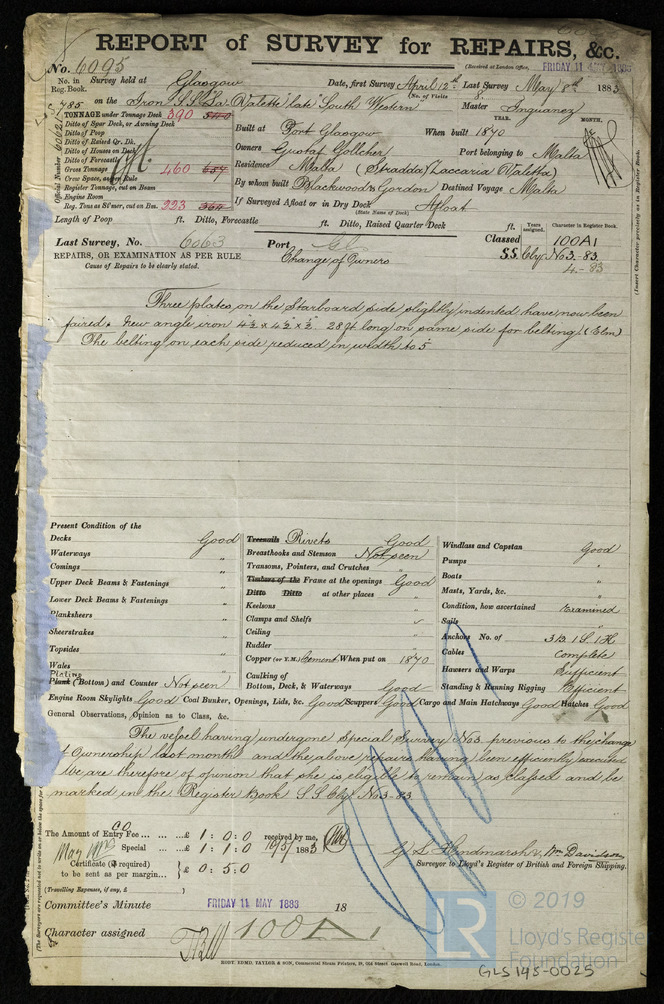 REPORT of SURVEY for REPAIRS, &c.
No. 6095
(Received at London Office, FRIDAY 11 MAY 1883
No. in Survey held at Glasgow Date, first Survey April 12th Last Survey May 8th 1883
Reg. Book.
(No. of Visits 8.
785 on the Iron S.S. "La Valette" late "South Western" Master Inguanez
TONNAGE under Tonnage Deck 390 540
YEAR. MONTH.
Ditto of Spar Deck, or Awning Deck
Ditto of Poop
Built at Port Glasgow When built 1870
Ditto of Raised Qr. Dk.
Ditto of Houses on Deck
Owners Gustaf Gollcher Port belonging to Malta
Ditto of Forecastle
Gross Tonnage 460 657
Residence Malta (Stradda Zaccaria Valetta)
Crew Space, as per Rule
Register Tonnage, cut on Beam
By whom built Blackwood & Gordon Destined Voyage Malta
Engine Room
Reg. Tons as St'mer, cut on Bm. 223 364
If Surveyed Afloat or in Dry Dock Afloat
(State Name of Dock.)
Length of Poop ft. Ditto, Forecastle ft. Ditto, Raised Quarter Deck ft.
Years assigned. Character in Register Book.
Last Survey, No. 6063 Port Gls Classed 100A1
S.S. Cly No3-83
4-83
REPAIRS, OR EXAMINATION AS PER RULE Change of Owners
Cause of Repairs to be clearly stated.
(Insert Character precisely as in Register Book.)
Three plates on the Starboard side slightly indented have now been
faired. New angle iron 4½ x 4½ x ½ 28ft long on same side for belting (Elm)
The belting on each side reduced in width to 5
Present Condition of the
Decks Good Treenails Rivets Good Windlass and Capstan Good
Waterways " Breasthooks and Stemson Not seen Pumps "
Comings " Transoms, Pointers, and Crutches Boats "
Upper Deck Beams & Fastenings " Timbers of the Frame at the openings Good Masts, Yards, &c. "
Lower Deck Beams & Fastenings " Ditto Ditto at other places Condition, how ascertained Examined
Planksheers " Keelsons Sails
Sheerstrakes " Clamps and Shelfs Anchors No. of 3B. 1S. 1K
Topsides " Ceiling Cables Complete
Wales " Rudder Hawsers and Warps Sufficient
Plating
Plank (Bottom) and Counter Not seen Copper (or Y.M.) Cement When put on 1870 Standing & Running Rigging Efficient
Caulking of
Bottom, Deck, & Waterways Good
Engine Room Skylights Good Coal Bunker, Openings, Lids, &c. Good Scuppers Good Cargo and Main Hatchways Good Hatches Good
General Observations, Opinion as to Class, &c.
The vessel having undergone Special Survey No3 previous to the change
of Ownership last month and the above repairs having been efficiently executed
We are therefore of opinion that she is eligible to remain as classed and be
marked in the Register Book S.S. Cly. No3-83
The Amount of Entry Fee ... ... £ 1 : 0 : 0 received by me,
Special ... ... £ 1 : 1 : 0 10/5/ 1883
Certificate (if required) to be sent as per margin... £ 0 : 5 : 0
(Travelling Expenses, if any, £ )
G. S. Hindmarsh & Wm. Davidson
Surveyor to Lloyd's Register of British and Foreign Shipping.
Committee's Minute FRIDAY 11 MAY 1883 18
Character assigned 100A1
ROBT. EDMD. TAYLOR & SON, Commercial Steam Printers, 19, Old Street, Goswell Road, London.
© 2019
LR
Lloyd's Register
Foundation
GLS 145-0025